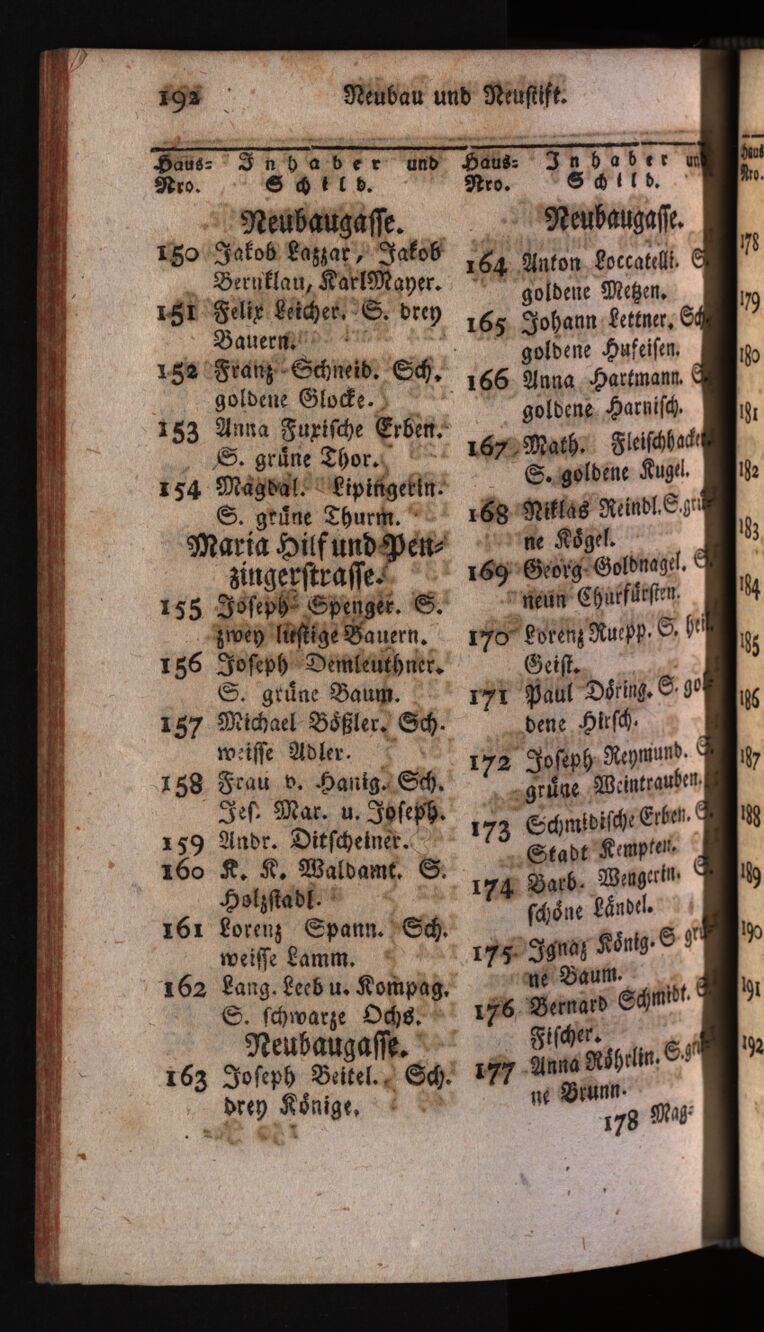 192 Neubau und Neustift.
Haus= Inhaber und
Nro. Schild.
Neubaugasse.
150 Jakob Lazzar, Jakob
Bernklau, Karl Mayer.
151 Felix Leicher. S. drey
Bauern.
152 Franz Schneid. Sch.
goldene Glocke.
153 Anna Fuxische Erben.
S. grüne Thor.
154 Magdal. Lipingerin.
S. grüne Thurm.
Maria Hilf und Pen=
zingerstrasse.
155 Joseph Spenger. S.
zwey lustige Bauern.
156 Joseph Demleuthner.
S. grüne Baum.
157 Michael Bößler. Sch.
weisse Adler.
158 Frau v. Hanig. Sch.
Jes. Mar. u. Joseph.
159 Andr. Ditscheiner.
160 K. K. Waldamt. S.
Holzstadl.
161 Lorenz Spann. Sch.
weisse Lamm.
162 Lang. Leeb u. Kompag.
S. schwarze Ochs.
Neubaugasse.
163 Joseph Beitel. Sch.
drey Könige.
Haus= Inhaber und
Nro. Schild.
Neubaugasse.
164 Anton Loccatelli. S
goldene Metzen.
165 Johann Lettner. Sch
goldene Hufeisen.
166 Anna Hartmann. S
goldene Harnisch.
167 Math. Fleischhacker
S. goldene Kugel.
168 Niklas Reindl. S. grü
ne Kögel.
169 Georg Goldnagel. S
neun Churfürsten.
170 Lorenz Ruepp. S. heil
Geist.
171 Paul Döring. S. gol
dene Hirsch.
172 Joseph Reymund. S
grüne Weintrauben.
173 Schmidische Erben. S
Stadt Kempten.
174 Barb. Wengerin. S
schöne Ländel.
175 Ignaz König. S grü
ne Baum.
176 Bernard Schmidt. S
Fischer.
177 Anna Röhrlin. S. grü
ne Brunn.
178 Mag=
Haus
Nro.
178
179
180
181
182
183
184
185
186
187
188
189
190
191
192